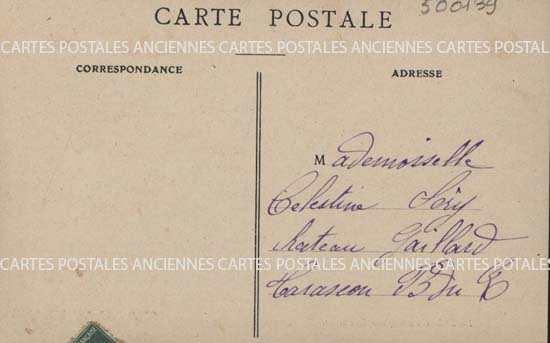 CARTE POSTALE
500139
CARTES POSTALES ANCIENNES CARTES POSTALES ANCIENNES CARTES POSTALES
CORRESPONDANCE
ADRESSE
Mademoiselle
Celestine Séry
chateau Gaillard
CARTES POSTALES ANCIENNES CARTES POSTALES ANCIENNES CARTES POSTALES
Tarascon B du R